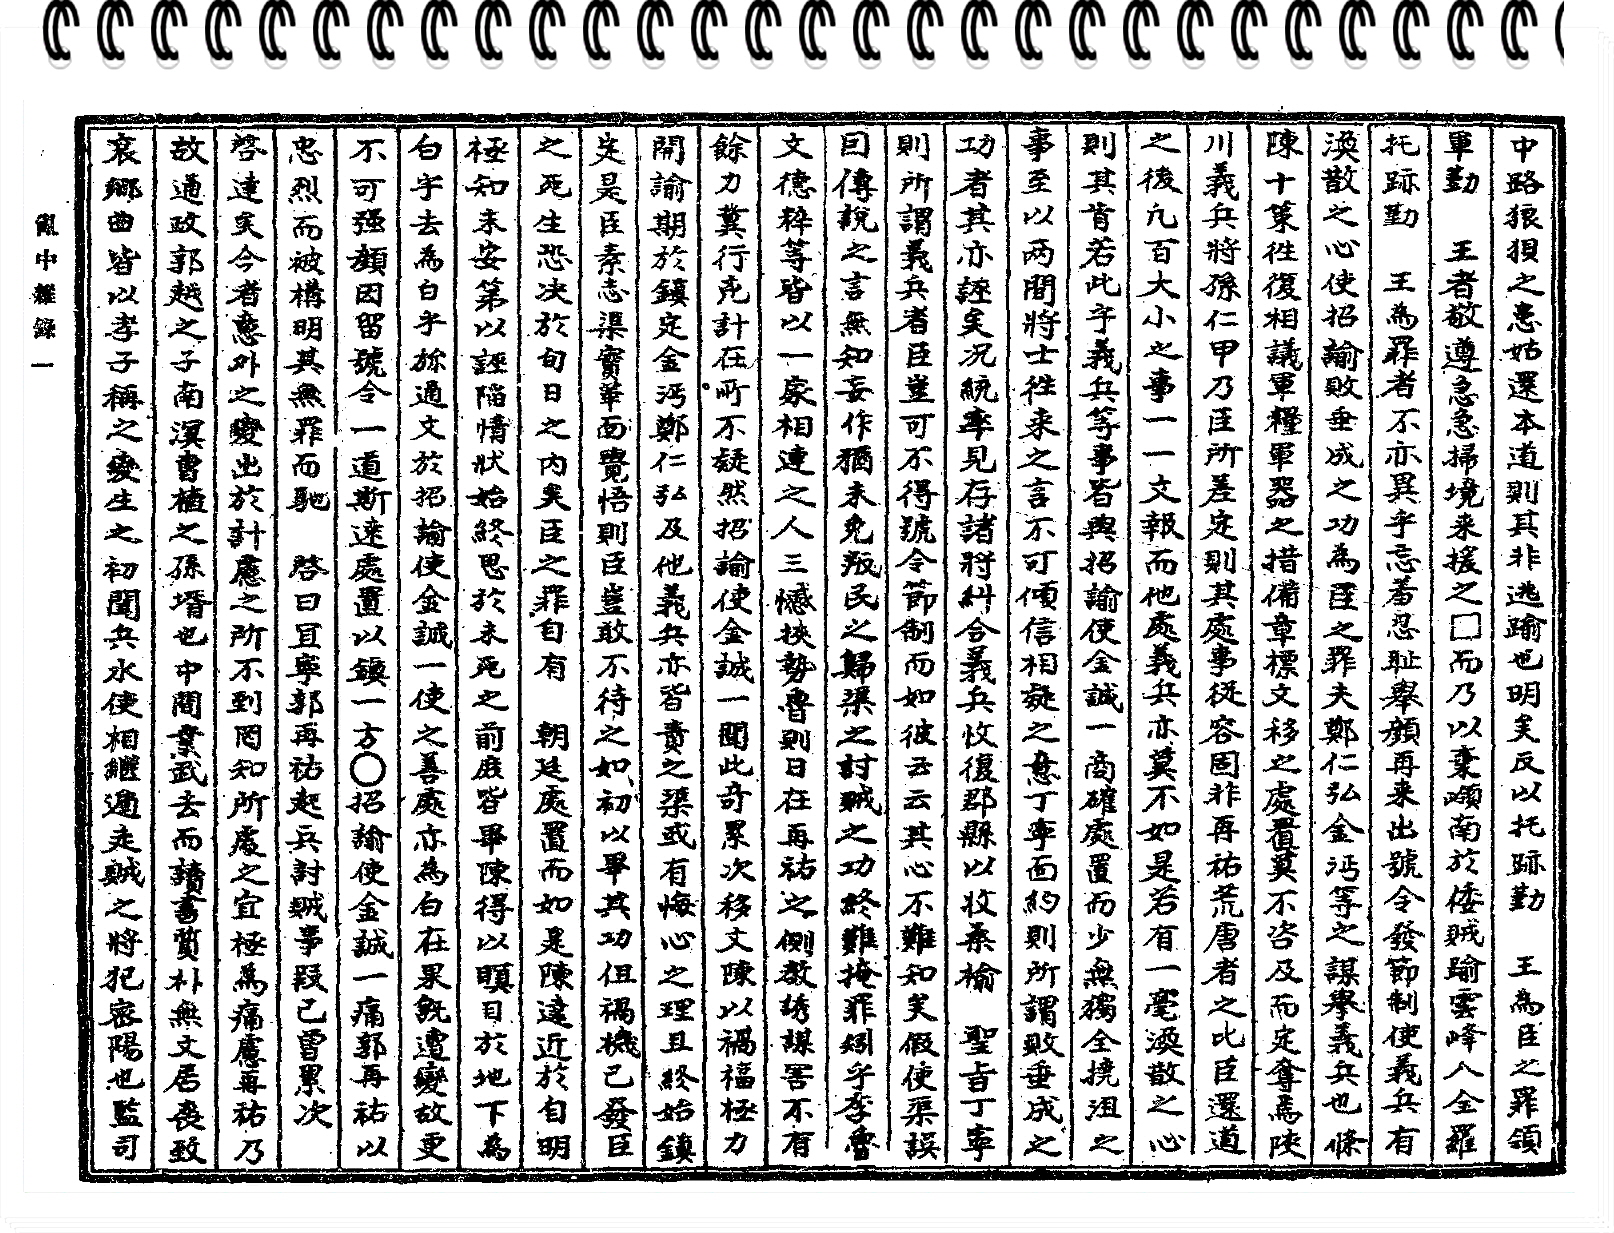 中路狼狽之患姑還本道則其非逃踰也明矣反以托跡勤　王為臣之罪領
軍勤　王者敬遵急急掃境来援之□而乃以棄嶺南於倭賊踰雲峰入全羅
托跡勤　王為罪者不亦異乎忘羞忍恥擧顔再来出號令發節制使義兵有
渙散之心使招諭敗垂成之功為臣之罪夫鄭仁弘金沔等之謀擧義兵也條
陳十策徃復相議軍糧軍器之措備章標文移之處置莫不咨及而定奪焉陜
川義兵將孫仁甲乃臣所差定則其處事従容固非再祐荒唐者之比臣還道
之後凡百大小之事一一文報而他處義兵亦莫不如是若有一毫渙散之心
則其肯若此乎義兵等事皆與招諭使金誠一商確處置而少無獨全撓沮之
事至以两間將士徃来之言不可傾信相疑之意丁寧面約則所謂敗垂成之
功者其亦誣矣况統率見存諸將糾合義兵收復郡縣以收桑榆　聖旨丁寧
則所謂義兵者臣豈可不得號令節制而如彼云云其心不難知矣假使渠誤
回傳説之言無知妄作猶未免叛民之歸渠之討賊之功終難掩罪矧乎李魯
文德粹等皆以一家相連之人三憾挾勢魯則日在再祐之側教誘謀害不有
餘力冀行兇計在所不疑然招諭使金誠一聞此奇累次移文陳以禍福極力
開諭期於鎮定金沔鄭仁弘及他義兵亦皆責之渠或有悔心之理且終始鎮
定是臣素志渠實革面覺悟則臣豈敢不待之如初以畢其功但禍機已發臣
之死生恐决於旬日之内矣臣之罪自有　朝廷處置而如是陳達近於自明
極知未安第以誣陥情状始終思於未死之前庶皆畢陳得以瞑目於地下為
白乎去為白乎旀通文於招諭使金誠一使之善處亦為白在果旣遭變故更
不可强顔因留號令一道斯速處置以鎮一方○招諭使金誠一痛郭再祐以
忠烈而被構明其無罪而馳　啓曰冝寧郭再祐起兵討賊事段已曾累次
啓達矣今者意外之變出於計慮之所不到罔知所處之宜極為痛慮再祐乃
故通政郭越之子南溟曺植之孫壻也中間業武去而讀書質朴無文居喪致
哀鄉曲皆以孝子稱之變生之初聞兵水使相継逃走賊之將犯密陽也監司
亂中雜錄一